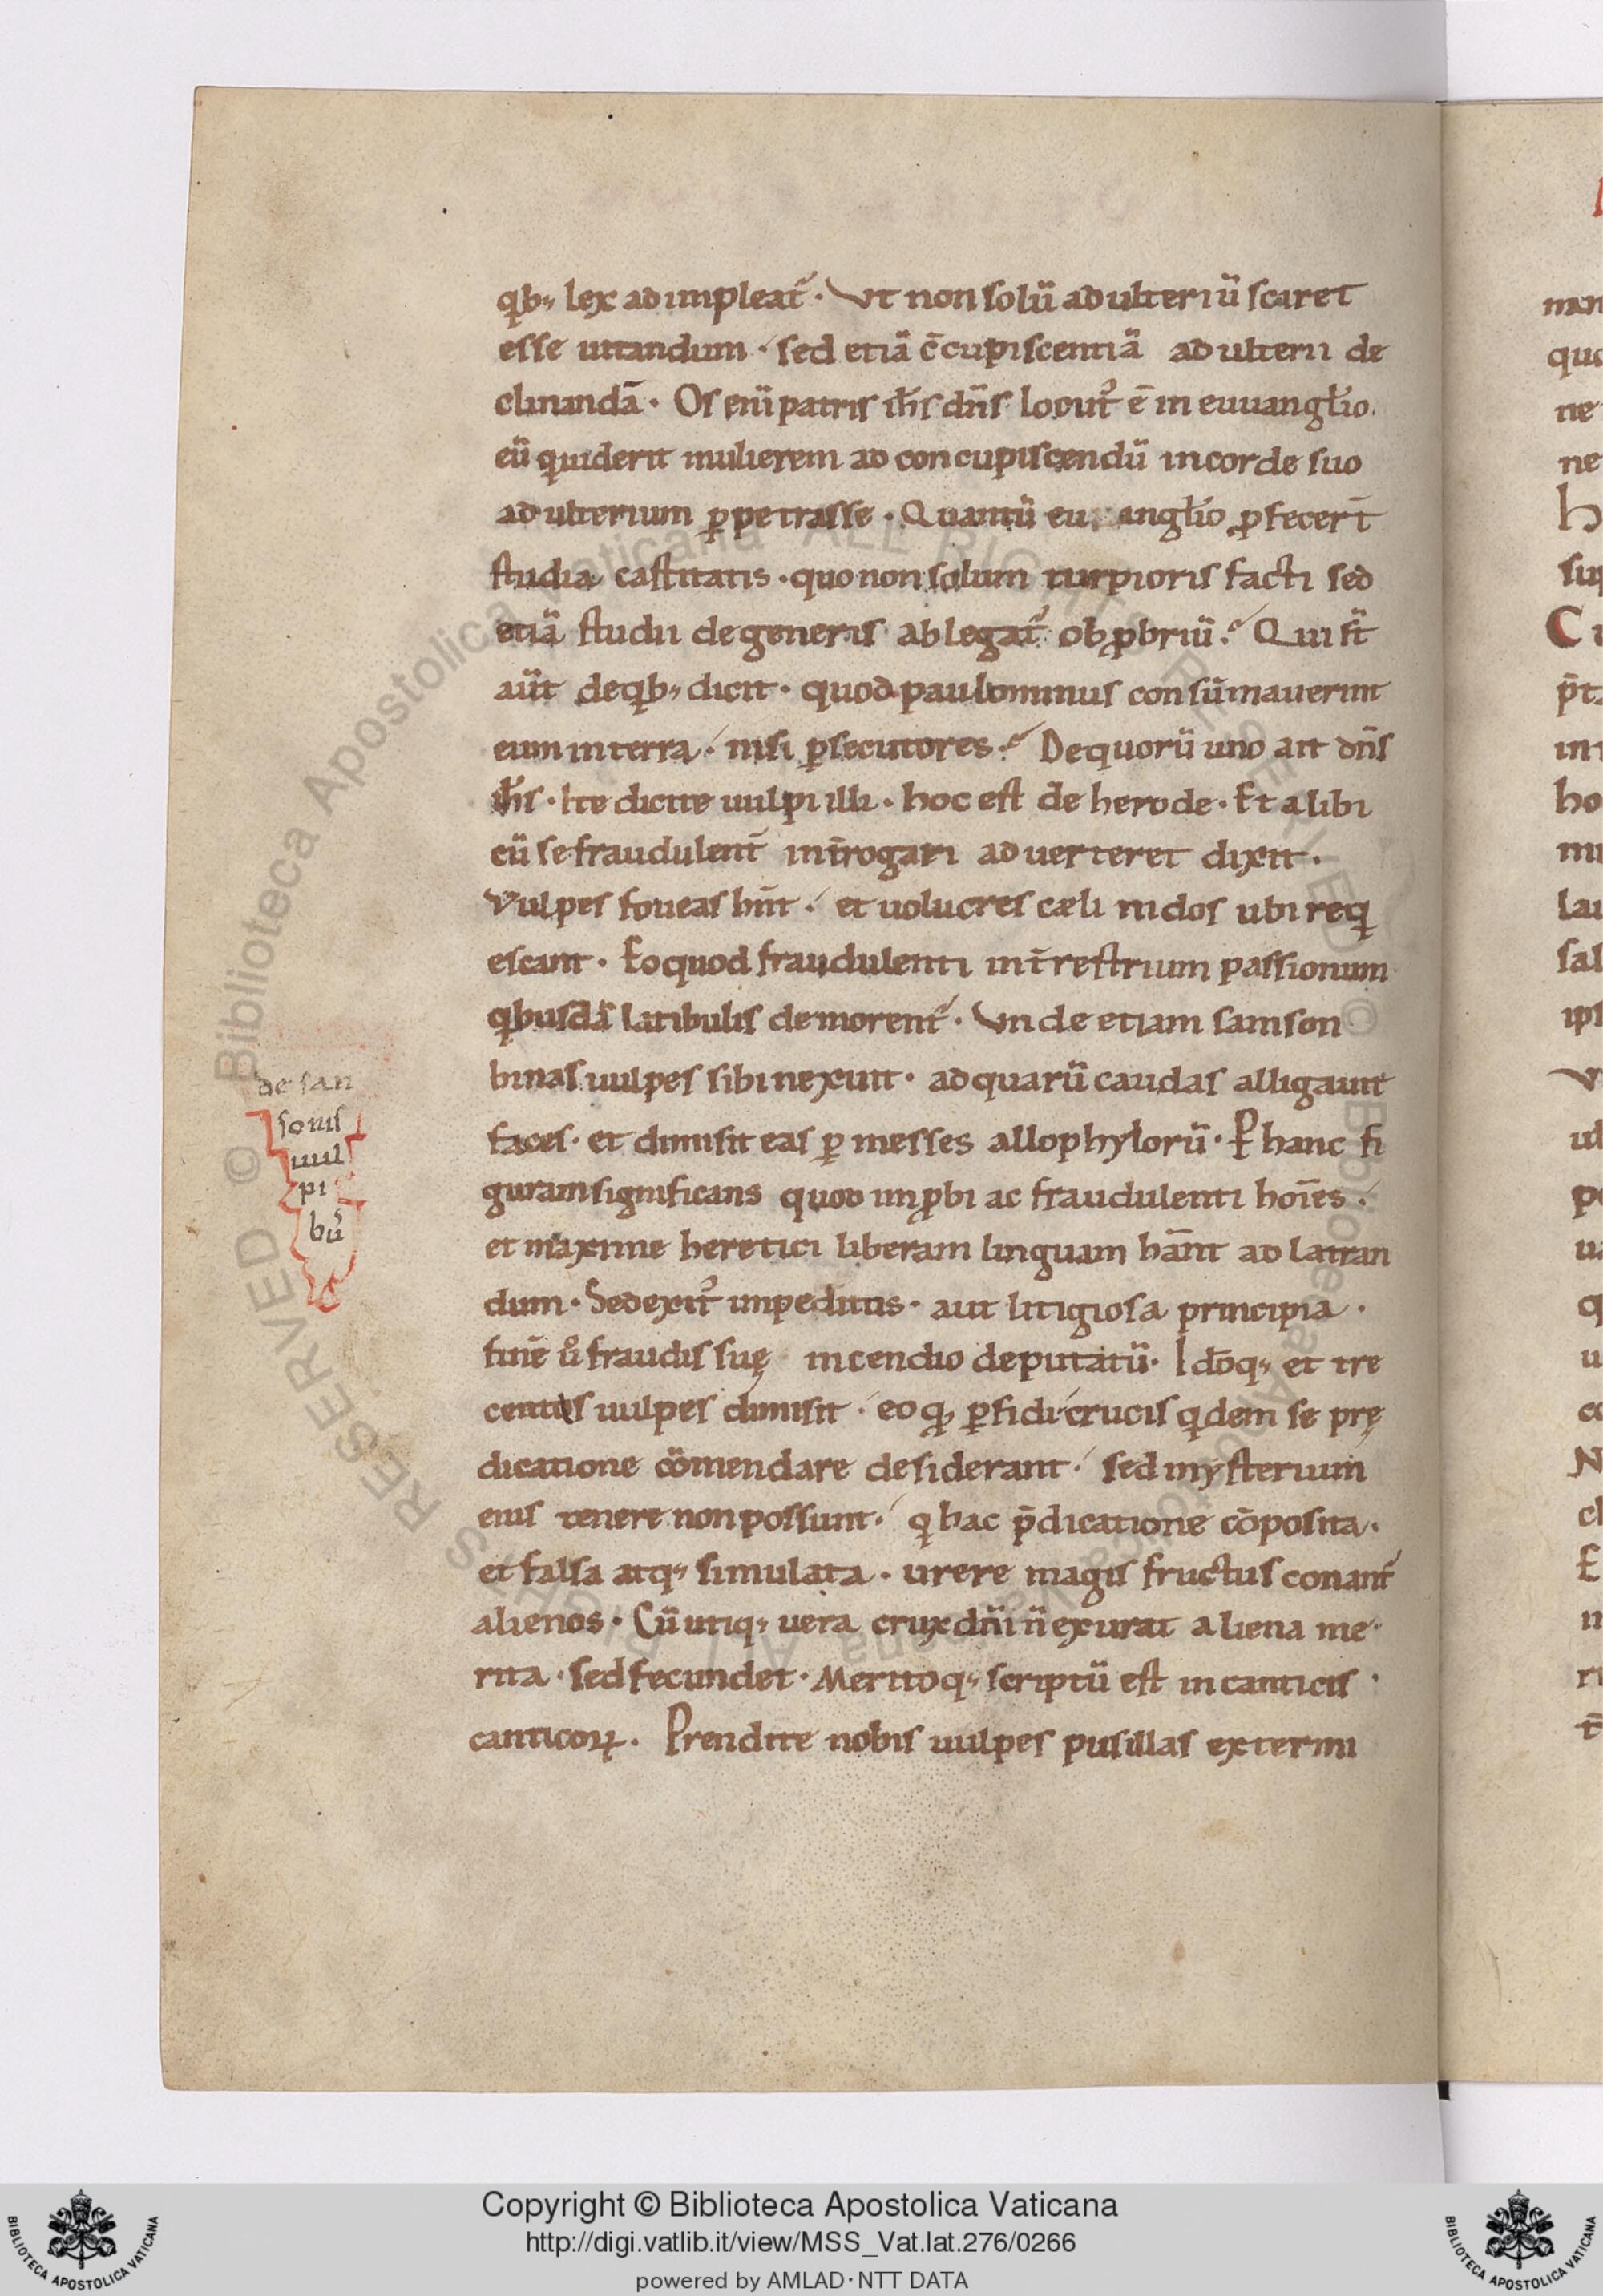 qb; lex adimpleat᷑. Vt non solū adulteriū sciret
esse uitandum. sed etiā c̄cupiscentiā adulterii de
clinandā. Os eni̅ patris ih̅s dn̅s locut᷑ ē in euuangl̅io.
eū qui uiderit mulierem ad concupiscendū in corde suo
adulterium ꝑpetrasse. Quantū euangl̅io ꝓfecer̅t
studia castitatis. quo non solum turpioris facti sed
etiā studii degeneris ablegat᷑ obꝓbriū. Qui st̅
aut̅ de qb; dicit. quod paulominus consūmauerunt
eum in terra. nisi ꝑsecutores. De quorū uno ait dn̅s
ih̅s. Ite dicite uulpi illi. hoc est de herode. Et alibi
cū se fraudulent̅ int̅rogari aduerteret dixit.
Vulpes foueas hn̅t. et uolucres cæli nidos ubi reqi
escant. Eo quod fraudulenti int̅restrium passionum
qbusdā latibulis demorent᷑. Vnde etiam samson
binas uulpes sibi nexuit. ad quarū caudas alligauit
faces. et dimisit eas ꝑ messes allophylorū. Ꝑ hanc fi
guram significans quod inꝓbi ac fraudulenti hoīes.
et maxime heretici liberam linguam hān̅t ad latran
dum. Sed exit᷑ impeditus. aut litigiosa principia.
finē ů fraudis suę incendio deputatū. Idoq; et tre
centas uulpes dimisit. eo qđ ꝑfidi crucis qdem se prę
dicatione cōmendare desiderant. sed mysterium
eius tenere non possunt. q hac p̄dicatione cōposita.
et falsa atq; simulata. urere magis fructus conant᷑
alienos. Cū utiq; uera crux dn̅i n̅ exurat aliena me
rita. sed fecundet. Meritoq; scriptū est in canticis
canticoꝝ. Prendite nobis uulpes pusillas extermi
de san
sonis
uul
pi
bus̄
Copyright © Biblioteca Apostolica Vaticana
http://digi.vatlib.it/view/MSS_Vat.lat.276/0266
powered by AMLAD·NTT DATA
BIBLIOTECA APOSTOLICA VATICANA
BIBLIOTECA APOSTOLICA VATICANA